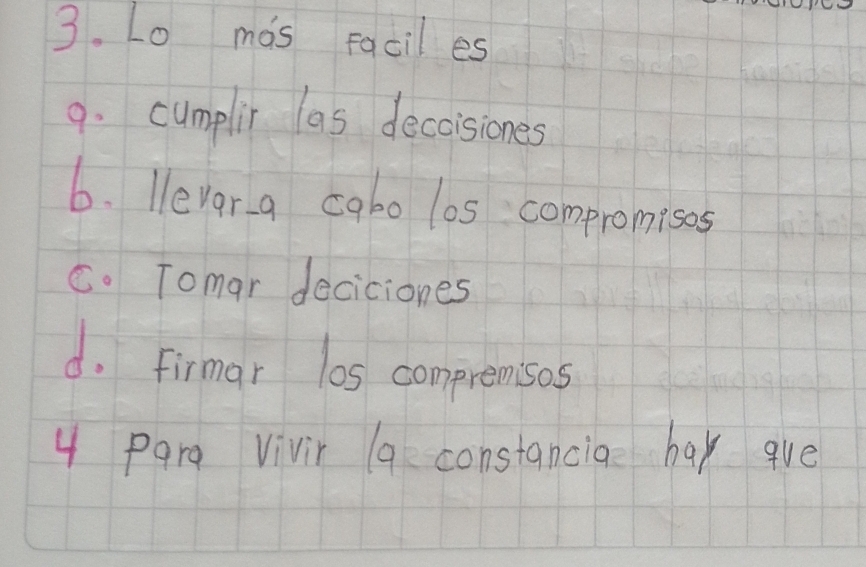 3. Lo más facil es
a. cumplir las deccisiones
b. llevar a cabo los compromisos
c. Tomar deciciones
d. Firmar los compremisos
4 Para vivir la constancia hay que